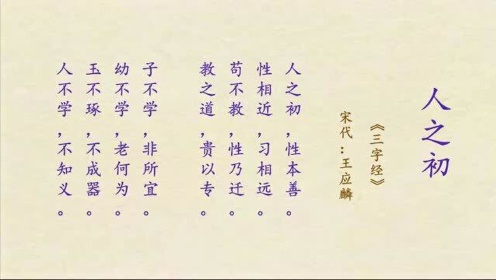 人之初
《三字经》
宋代：王应麟
人之初，性本善。
性相近，习相远。
苟不教，性乃迁。
教之道，贵以专。
子不学，非所宜。
幼不学，老何为。
玉不琢，不成器。
人不学，不知义。